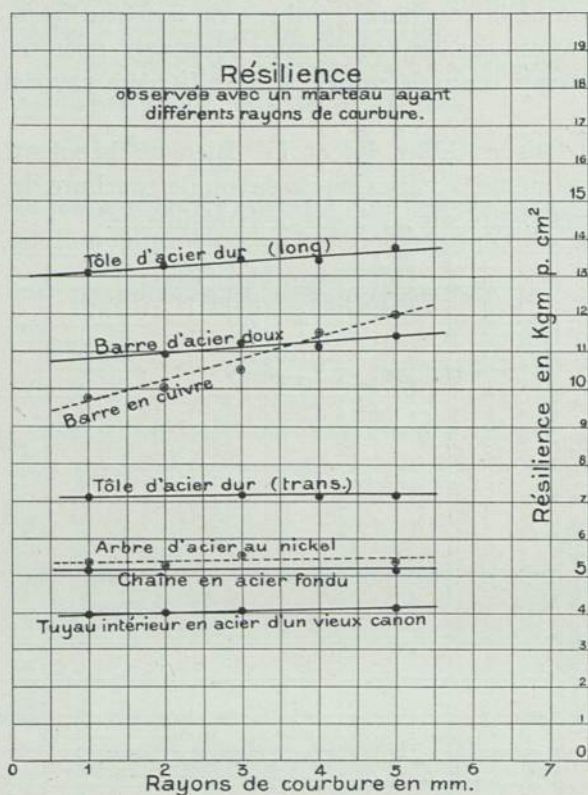 Résilience
observée avec un marteau ayant
différents rayons de courbure.
Tôle d'acier dur (long)
Barre d'acier doux
Barre en cuivre
Tôle d'acier dur (trans.)
Arbre d'acier au nickel
Chaîne en acier fondu
Tuyau intérieur en acier d'un vieux canon
19
18
17
16
15
14
13
12
11
10
9
8
7
6
5
4
3
2
1
0
Résilience en Kgm p. cm²
0 1 2 3 4 5 6 7
Rayons de courbure en mm.